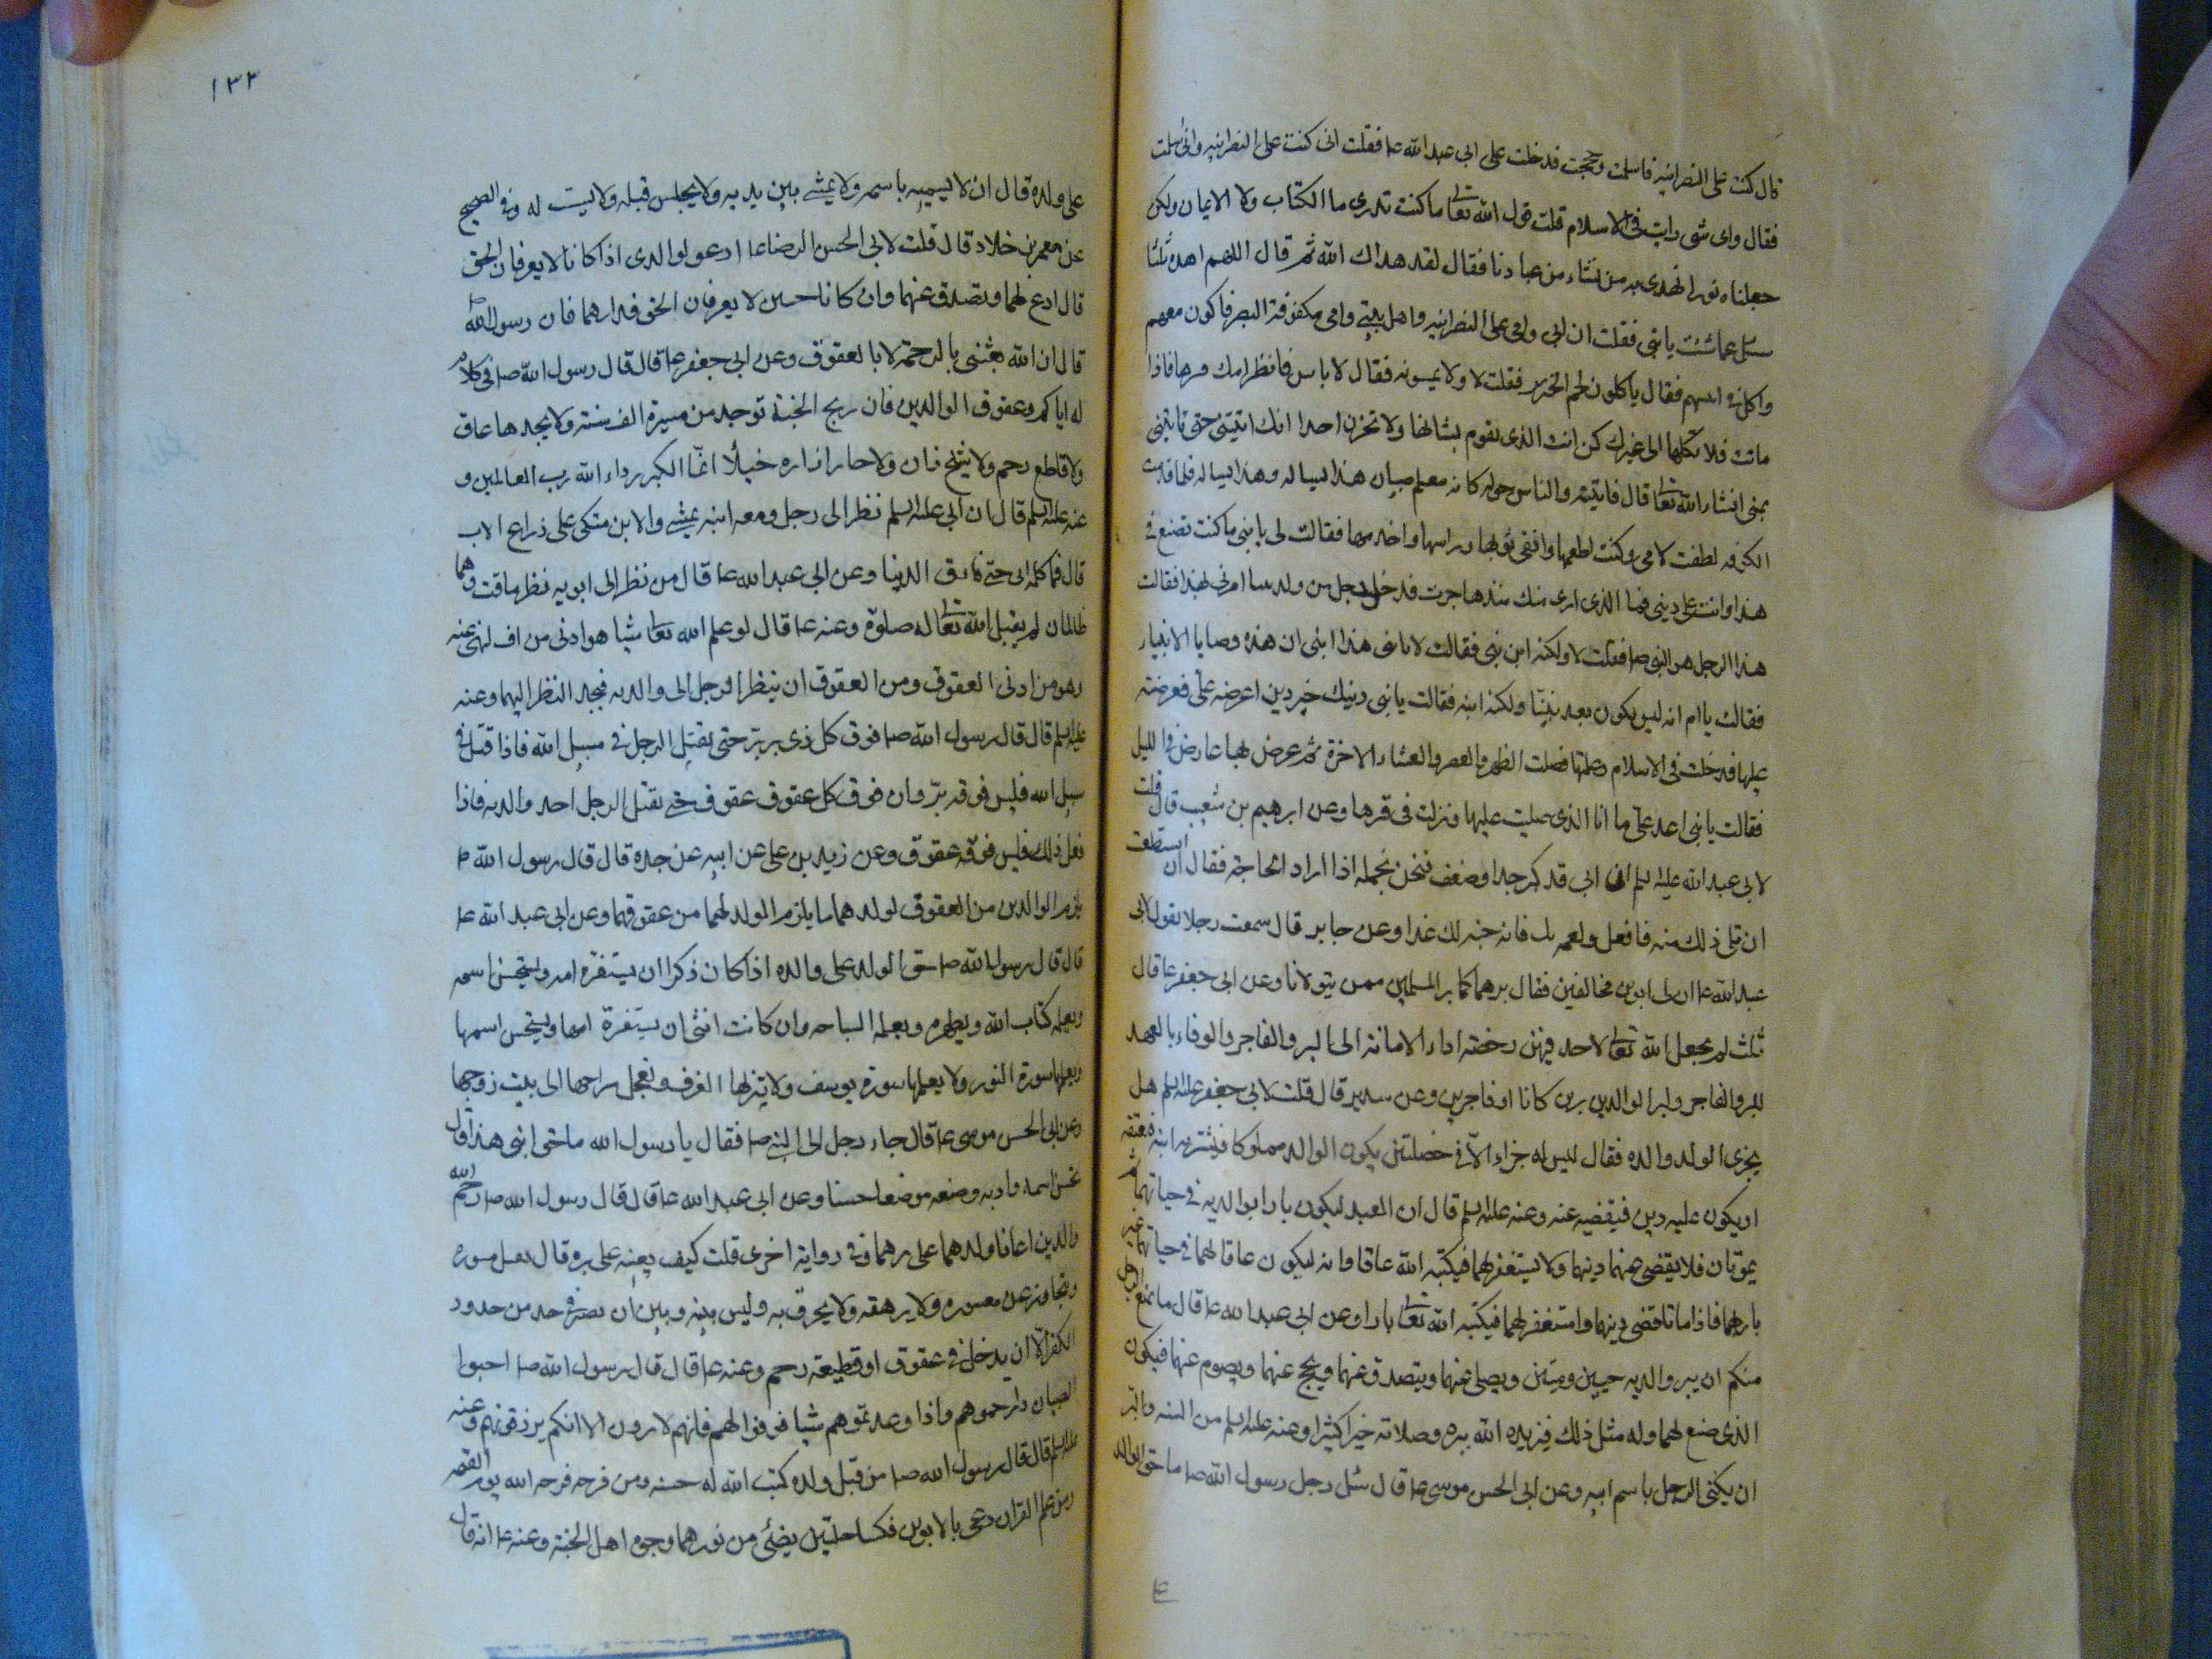 قال كنت على النصرانيه فاسلمت وحججت فدخلت على ابى عبد الله عا فقلت انى كنت على النصرانيه وانى اسلمت
فقال واى شى رايت فى الاسلام قلت قول الله تعا ما كنت تدرى ما الكتاب ولا الايمان ولكن
جعلناه نورا نهدى به من نشاء من عبادنا فقال لقد هداك الله ثم قال اللهم اهده ثلثا
سئل عما شئت يا بنى فقلت ان ابى وامى على النصرانيه واهل بيتى وامى مكفوفة البصر فاكون معهم
واكل فى انيتهم فقال ياكلون لحم الخنزير فقلت لا ولا يمسونه فقال لا باس فانظر امك فبرها فاذا
ماتت فلا تكلها الى غيرك كن انت الذى يقوم بشانها ولا تخبرن احدا انك اتيتنى حتى تاتينى
بمنى انشاء الله تعا قال فاتيته والناس حوله كانه معلم صبيان هذا يساله وهذا يساله فلما قدمت
الكوفه لطفت لامى وكنت اطعمها وافلى ثوبها وراسها واخدمها فقالت لى يا بنى ما كنت تصنع بى
هذا وانت على دينى فما الذى ارى منك منذ هاجرت فدخلت رجل من ولد نبينا امرنى بهذا فقالت
هذا الرجل هو النبى صا فقلت لا ولكنه ابن نبى فقالت لا يا بنى هذا نبى ان هذه وصايا الانبياء
فقالت يا ام انه ليس يكون بعد نبينا ولكنه ابنه فقالت يا بنى دينك خير دين اعرضه على فعرضته
عليها فدخلت فى الاسلام وعلمتها فصلت الظهر والعصر والعشاء الاخرة ثم عرض لها عارض فى الليل
فقالت يا بنى اعد على ما انا الذى صليت عليها ونزلت فى قبرها وعن ابرهيم بن شعيب قال قلت
لابى عبد الله عليه السلم ان ابى قد كبر جدا وضعف فنحن نحمله اذا اراد الحاجة فقال ان استطعت
ان تلى ذلك منه فافعل ولقمه بيدك فانه جنة لك غدا وعن جابر قال سمعت رجلا يقول لابى
عبد الله عا ان لى ابوين مخالفين فقال برهما كما تبر المسلمين ممن يتولانا وعن ابى جعفر عا قال
ثلث لم يجعل الله تعا لاحد فيهن رخصة اداء الامانة الى البر والفاجر والوفاء بالعهد
للبر والفاجر وبر الوالدين برين كانا او فاجرين وعن سدير قال قلت لابى جعفر عليه السلم هل
يجزى الولد والده فقال ليس له جزاء الا فى خصلتين يكون الوالد مملوكا فيشتريه ابنه فيعتقه
او يكون عليه دين فيقضيه عنه وعنه عليه السلم قال ان العبد ليكون بارا بوالديه فى حياتهما ثم
يموتان فلا يقضى عنهما دينهما ولا يستغفر لهما فيكتبه الله عاقا وانه ليكون عاقا لهما فى حياتهما غير
بار بهما فاذا ماتا قضى دينهما واستغفر لهما فيكتبه الله تعا بارا وعن ابى عبد الله عا قال ما يمنع الرجل
منكم ان يبر والديه حيين وميتين ويصلى عنهما ويتصدق عنهما ويحج عنهما ويصوم عنهما فيكون
الذى صنع لهما وله مثل ذلك فيزيده الله ببره وصلاته خيرا كثيرا وعنه عليه السلم من السنه والبر
ان يكنى الرجل باسم ابيه وعن ابى الحسن موسى عا قال سئل رجل رسول الله صا ما حق الوالد
١٣٣
على ولده قال ان لا يسميه باسمه ولا يمشى بين يديه ولا يجلس قبله ولا يستسب له وفى الصحيح
عن معمر بن خلاد قال قلت لابى الحسن الرضا عا ادعو لوالدى اذا كانا لا يعرفان الحق
قال ادع لهما وتصدق عنهما وان كانا حيين لا يعرفان الحق فدارهما فان رسول الله ص
قال ان الله بعثنى بالرحمة لا بالعقوق وعن ابى جعفر عا قال قال رسول الله صا فى كلام
له اياكم وعقوق الوالدين فان ريح الجنة توجد من مسيرة الف سنة ولا يجدها عاق
ولا قاطع رحم ولا شيخ زان ولا جار ازاره خيلاء انما الكبر رداء الله رب العالمين و
عنه عليه السلم قال ان ابى عليه السلم نظر الى رجل ومعه ابنه يمشى والابن متكى على ذراع الاب
قال فما كلمه ابى حتى فارق الدنيا وعن ابى عبد الله عا قال من نظر الى ابويه نظر ماقت وهما
ظالمان لم يقبل الله تعا له صلوة وعنه عا قال لو علم الله تعا شيا هو ادنى من اف لنهى عنه
وهو من ادنى العقوق ومن العقوق ان ينظر الرجل الى والديه فيحد النظر اليهما وعنه
عليه السلم قال قال رسول الله صا فوق كل ذى بر بر حتى يقتل الرجل فى سبيل الله فاذا قتل فى
سبيل الله فليس فوقه بر وان فوق كل عقوق عقوق حتى يقتل الرجل احد والديه فاذا
فعل ذلك فليس فوقه عقوق وعن زيد بن على عن ابيه عن جده قال قال رسول الله ص
يلزم الوالدين من العقوق لولدهما ما يلزم الولد لهما من عقوقهما وعن ابى عبد الله عا
قال قال رسول الله صا حق الولد على والده اذا كان ذكرا ان يستفره امه ويستحسن اسمه
ويعلمه كتاب الله ويطهره ويعلمه السباحه وان كانت انثى ان يستفره امها ويستحسن اسمها
ويعلمها سورة النور ولا يعلمها سورة يوسف ولا ينزلها الغرف ويعجل سراحها الى بيت زوجها
وعن ابى الحسن موسى عا قال جاء رجل الى النبى صا فقال يا رسول الله ما حق ابنى هذا قال
تحسن اسمه وادبه وضعه موضعا حسنا وعن ابى عبد الله عا قال قال رسول الله صا رحم الله
والدين اعانا ولدهما على برهما وفى رواية اخرى قلت كيف يعينه على بره قال يقبل ميسوره
ويتجاوز عن معسوره ولا يرهقه ولا يخرق به وليس بينه وبين ان يصير فى حد من حدود
الكفر الا ان يدخل فى عقوق او قطيعة رحم وعنه عا قال قال رسول الله صا احبوا
الصبيان وارحموهم واذا وعدتموهم شيا ففوا لهم فانهم لا يرون الا انكم ترزقونهم وعنه
عليه السلم قال قال رسول الله صا من قبل ولده كتب الله له حسنه ومن فرحه فرحه الله يوم القيمه
ومن علمه القران دعى بالابوين فكسيا حلتين يضئ من نورهما وجوه اهل الجنة وعنه عا انه قال